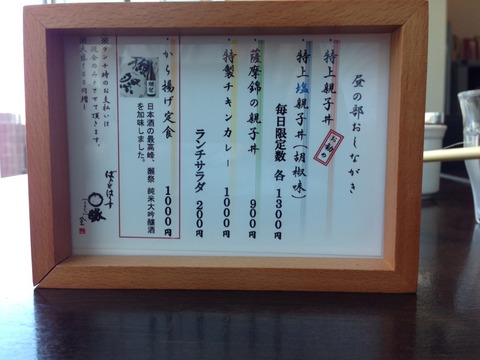 昼の部おしながき
・特上親子丼
お勧め
・特上塩親子丼(胡椒味)
毎日限定数 各1300円
・薩摩錦の親子丼 900円
・特製チキンカレー 1000円
ランチサラダ 200円
・から揚げ定食 1000円
獺祭
日本酒の最高峰、獺祭 純米大吟醸酒
を加味しました。
※ランチ時のお支払いは
現金のみとさせて頂きます。